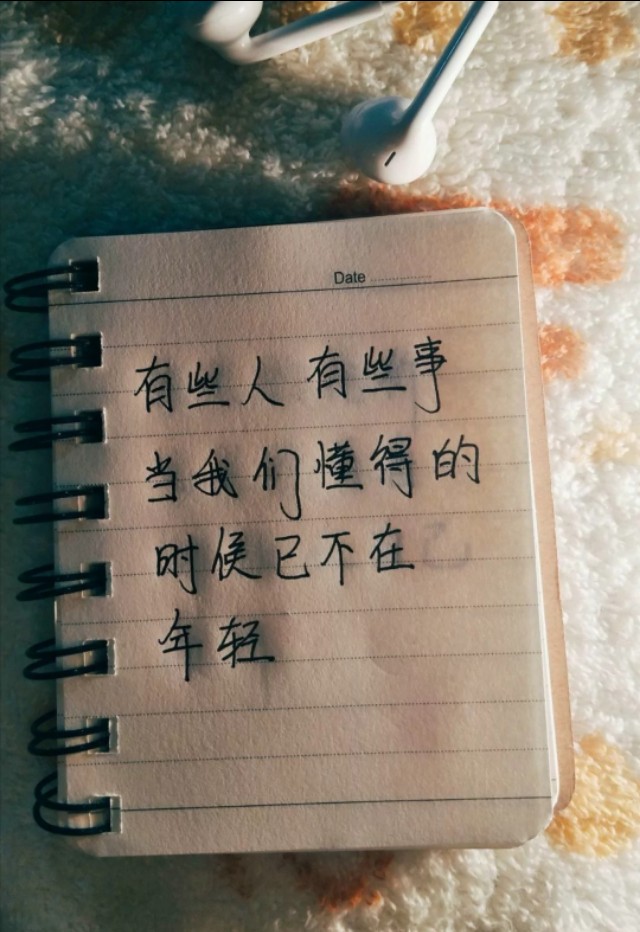 Date
有些人 有些事
当我们懂得的
时候已不在
年轻